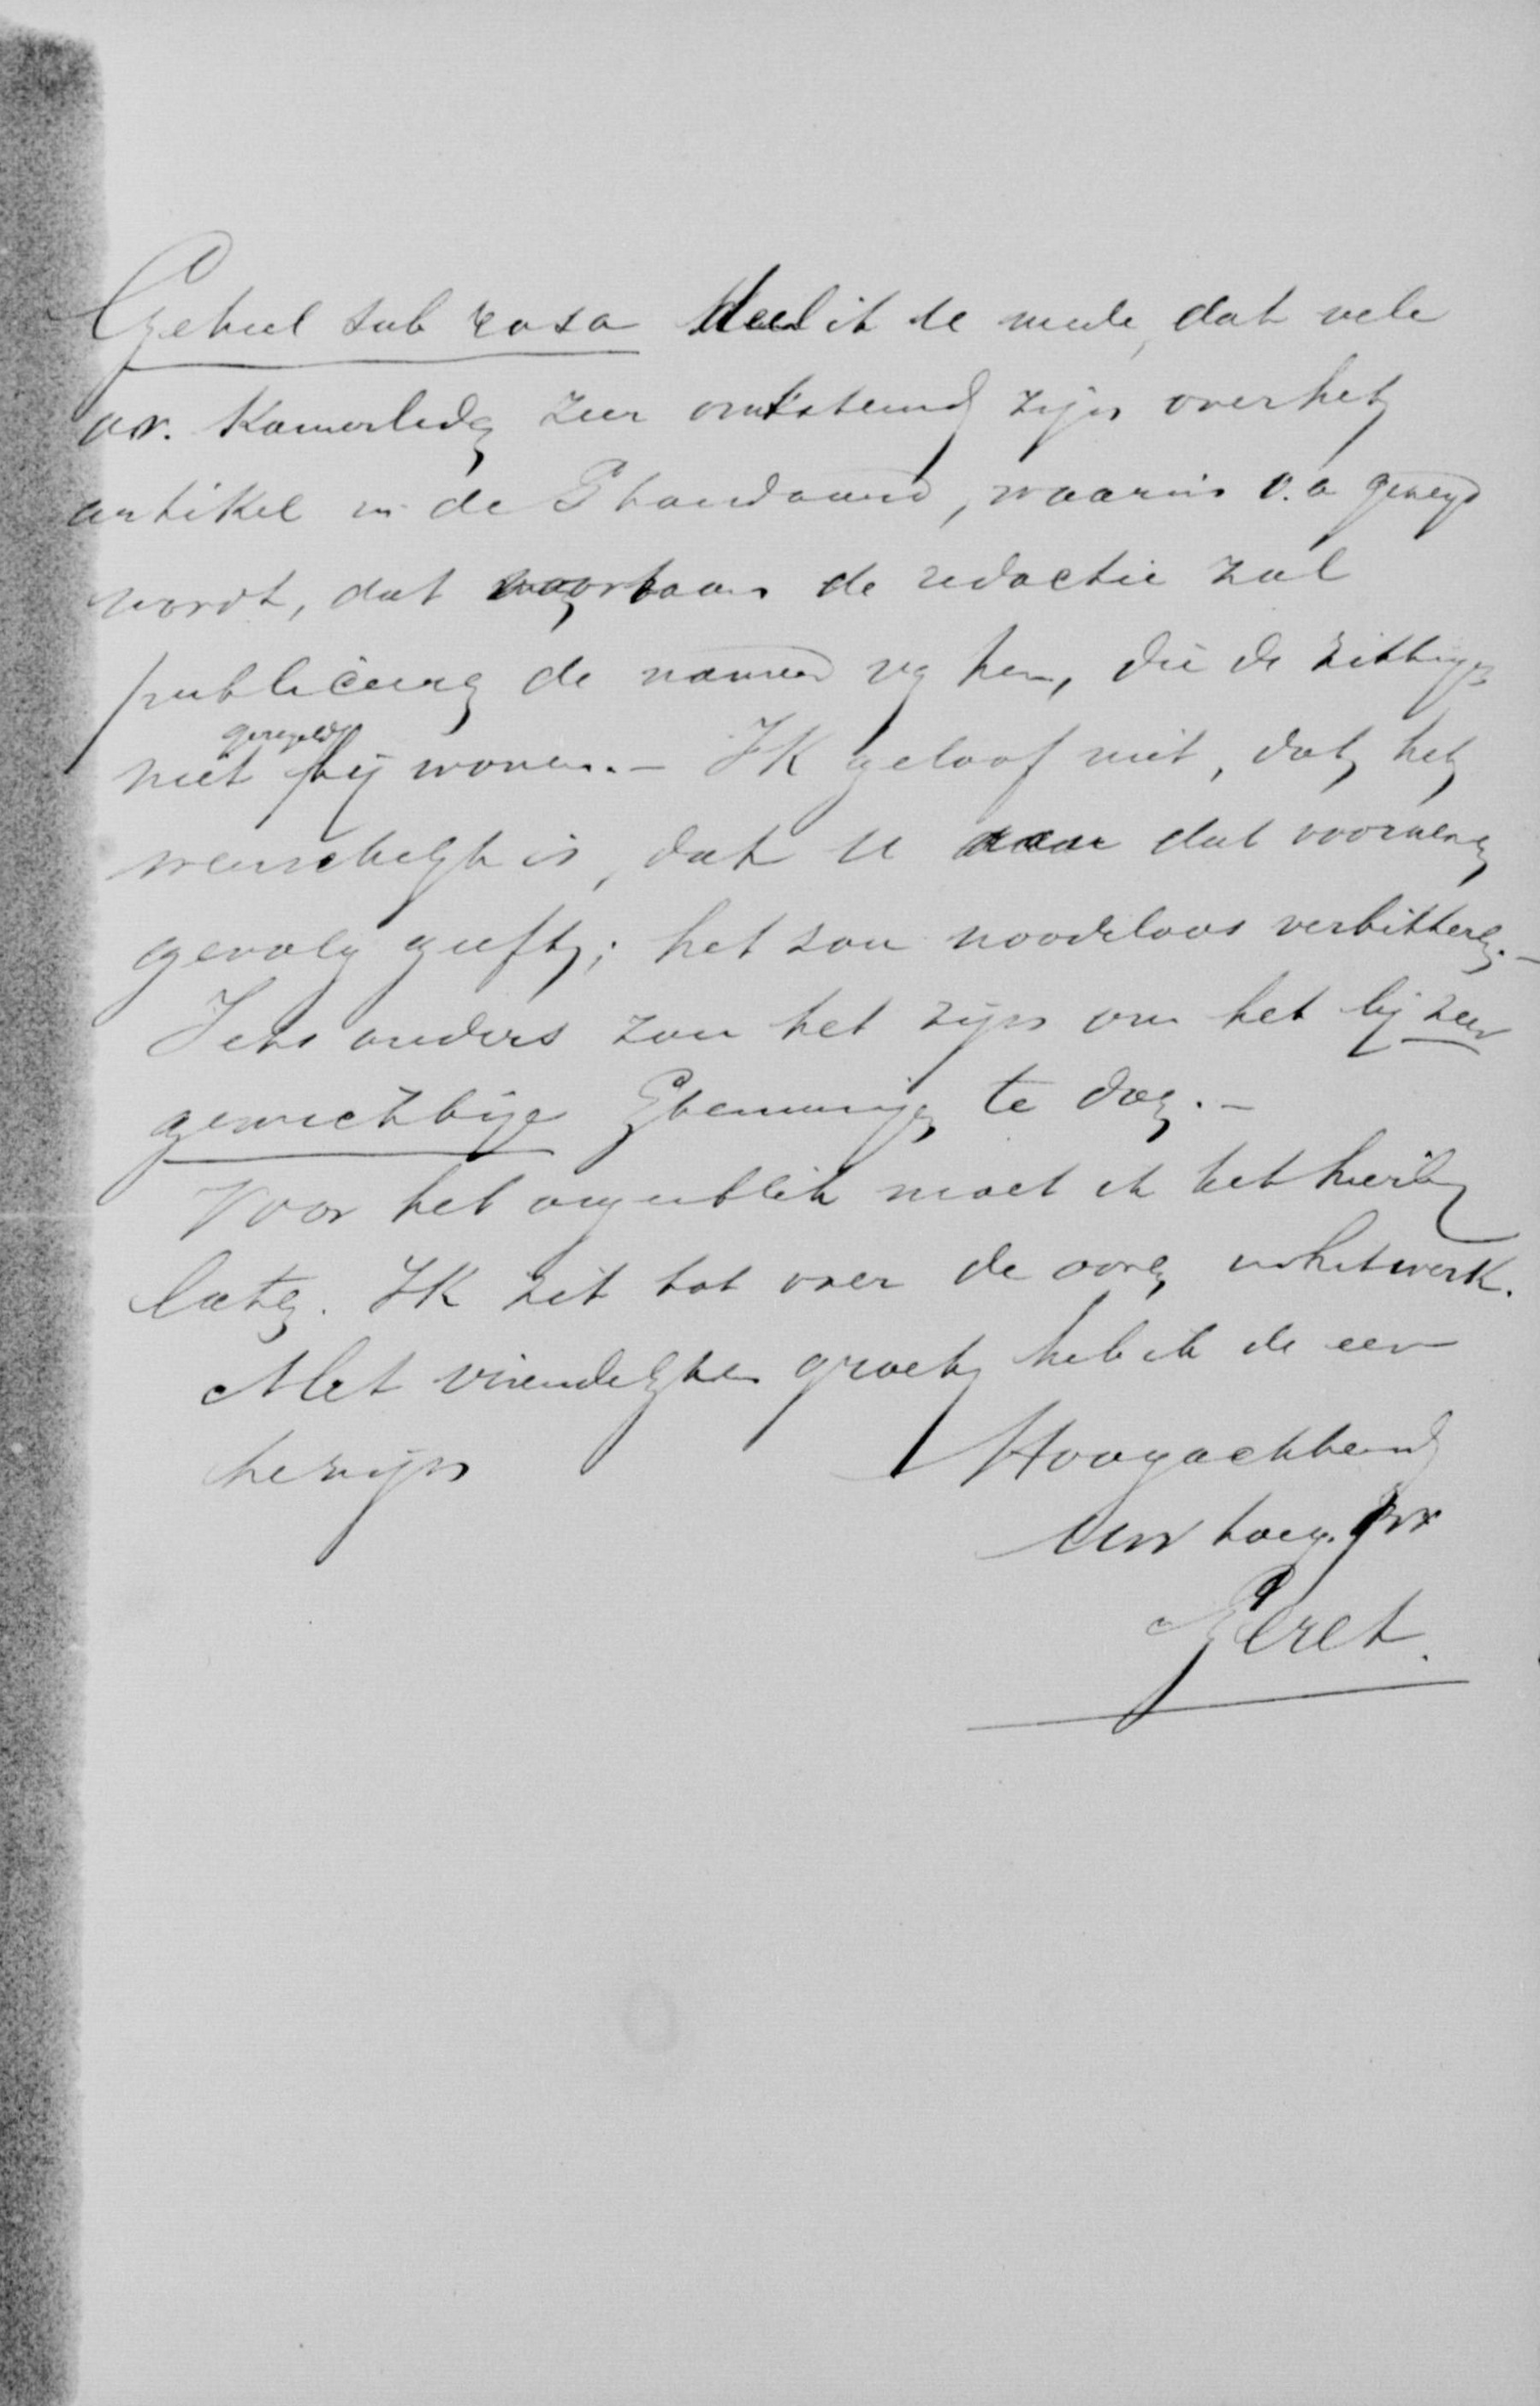 Geheel sub rosa deel ik U mede, dat vele
a.r. Kamerleden zeer ontstemd zijn over het
artikel in de Standaard, waarin o.a. gezegd
wordt, dat voortaan de redactie zal
publiceeren de namen van hen, die de zittingen
niet geregeld bij wonen. – Ik geloof niet, dat het
wenschelijk is, dat U aan dat voornemen
gevolg geeft; het zou noodeloos verbitteren. –
Iets anders zou het zijn om het bij zeer
gewichtige stemmingen te doen. –
Voor het oogenblik moet ik het hierbij
laten. Ik zit tot over de ooren in het werk.
Met vriendelijken groet heb ik de eer
te zijn Hoogachtend
Uw toeg.